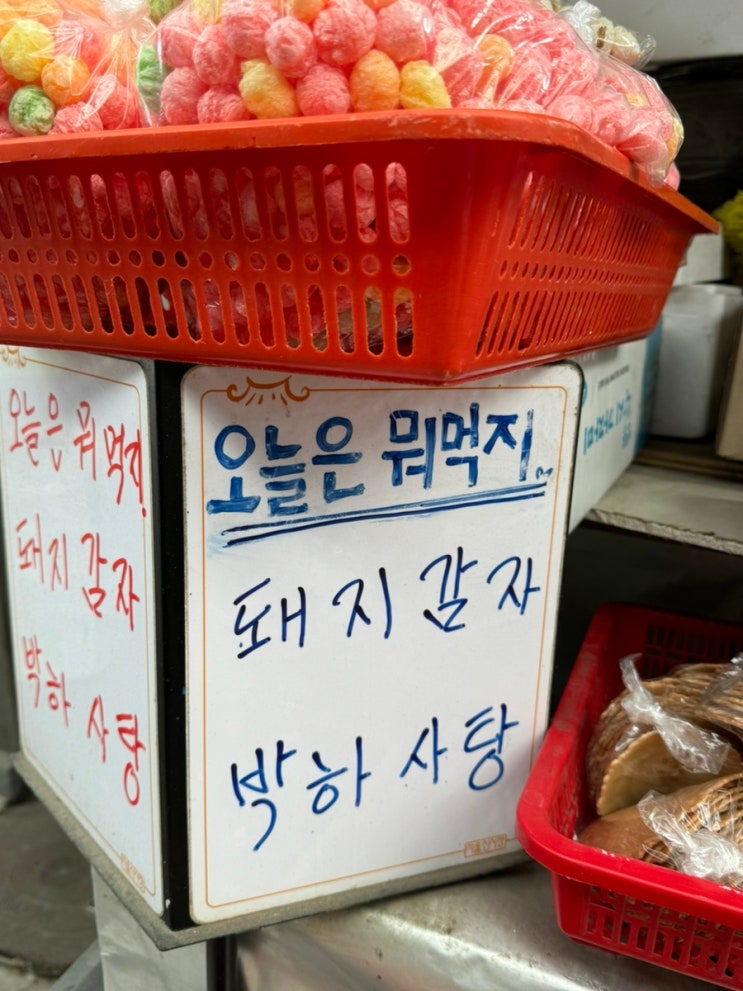 오늘은 뭐먹지!
돼지감자
박하사탕
오늘은 뭐먹지?
돼지감자
박하사탕